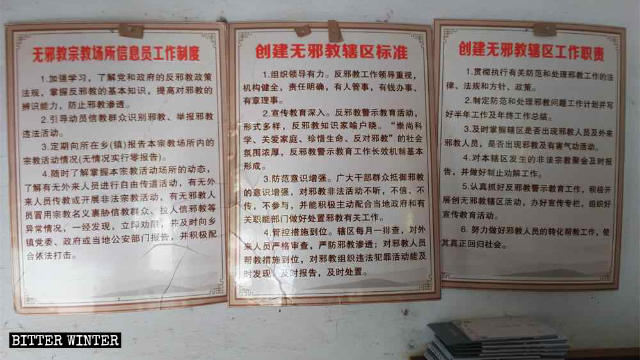 无邪教宗教场所信息员工作制度
1.加强学习，了解党和政府的反邪教政策
法规，掌握反邪教的基本知识，提高对邪教的
辨识能力，防止邪教渗透。
2.引导动员信教群众识别邪教、举报邪教
违法活动。
3.定期向所在乡(镇)报告本宗教场所内的
宗教活动情况(无情况实行零报告)。
4.随时了解掌握本教活动场所的动态，
了解有无外来人员进行自由传道活动，有无外
来人员传教或开展非法宗教活动，有无邪教人
员冒用宗教名义裹胁信教群众、拉人信邪教等
异常情况，一经发现，立即劝阻，并及时向乡
镇党委、政府或当地公安部门报告，并积极配
合依法打击。
创建无邪教辖区标准
1.组织领导有力。反邪教工作领导重视，
机构健全，责任明确，有人管事，有钱办事、
有章理事。
2.宣传教育深入。反邪教警示教育活动，
形式多样，反邪教知识家喻户晓。“崇尚科
学、关爱家庭、珍惜生命、反对邪教”的社会
氛围浓厚，反邪教警示教育工作长效机制基本
形成。
3.防范意识增强。广大干部群众抵御邪教
的意识增强，对邪教非法活动不听，不信、不
传，不参与，并能积极主动配合当地政府和有
关职能部门做好处置邪教有关工作。
4.管控措施到位。辖区每月一排查，对外
来人员严格审查，严防邪教渗透；对邪教人员
帮教措施到位，对邪教组织违法犯罪活动能及
时发现，及时报告，及时处置。
创建无邪教辖区工作职责
1.贯彻执行有关防范和处理邪教工作的法
律、法规和方针、政策。
2.制定防范和处理邪教问题工作计划并写
好半年工作及年终工作总结。
3.及时掌握辖区是否出现邪教人员及外来
邪教人员，是否出现邪教及有害气功活动。
4.对本辖区发生的非法宗教聚会及时报
告，并做好制止劝解工作。
5.认真抓好反邪教警示教育工作，积极开
展创无邪教辖区活动，办好宣传专栏，组织好
宣传教育活动。
6.努力做好邪教人员的转化帮教工作，使
其真正回归社会。
BITTER WINTER